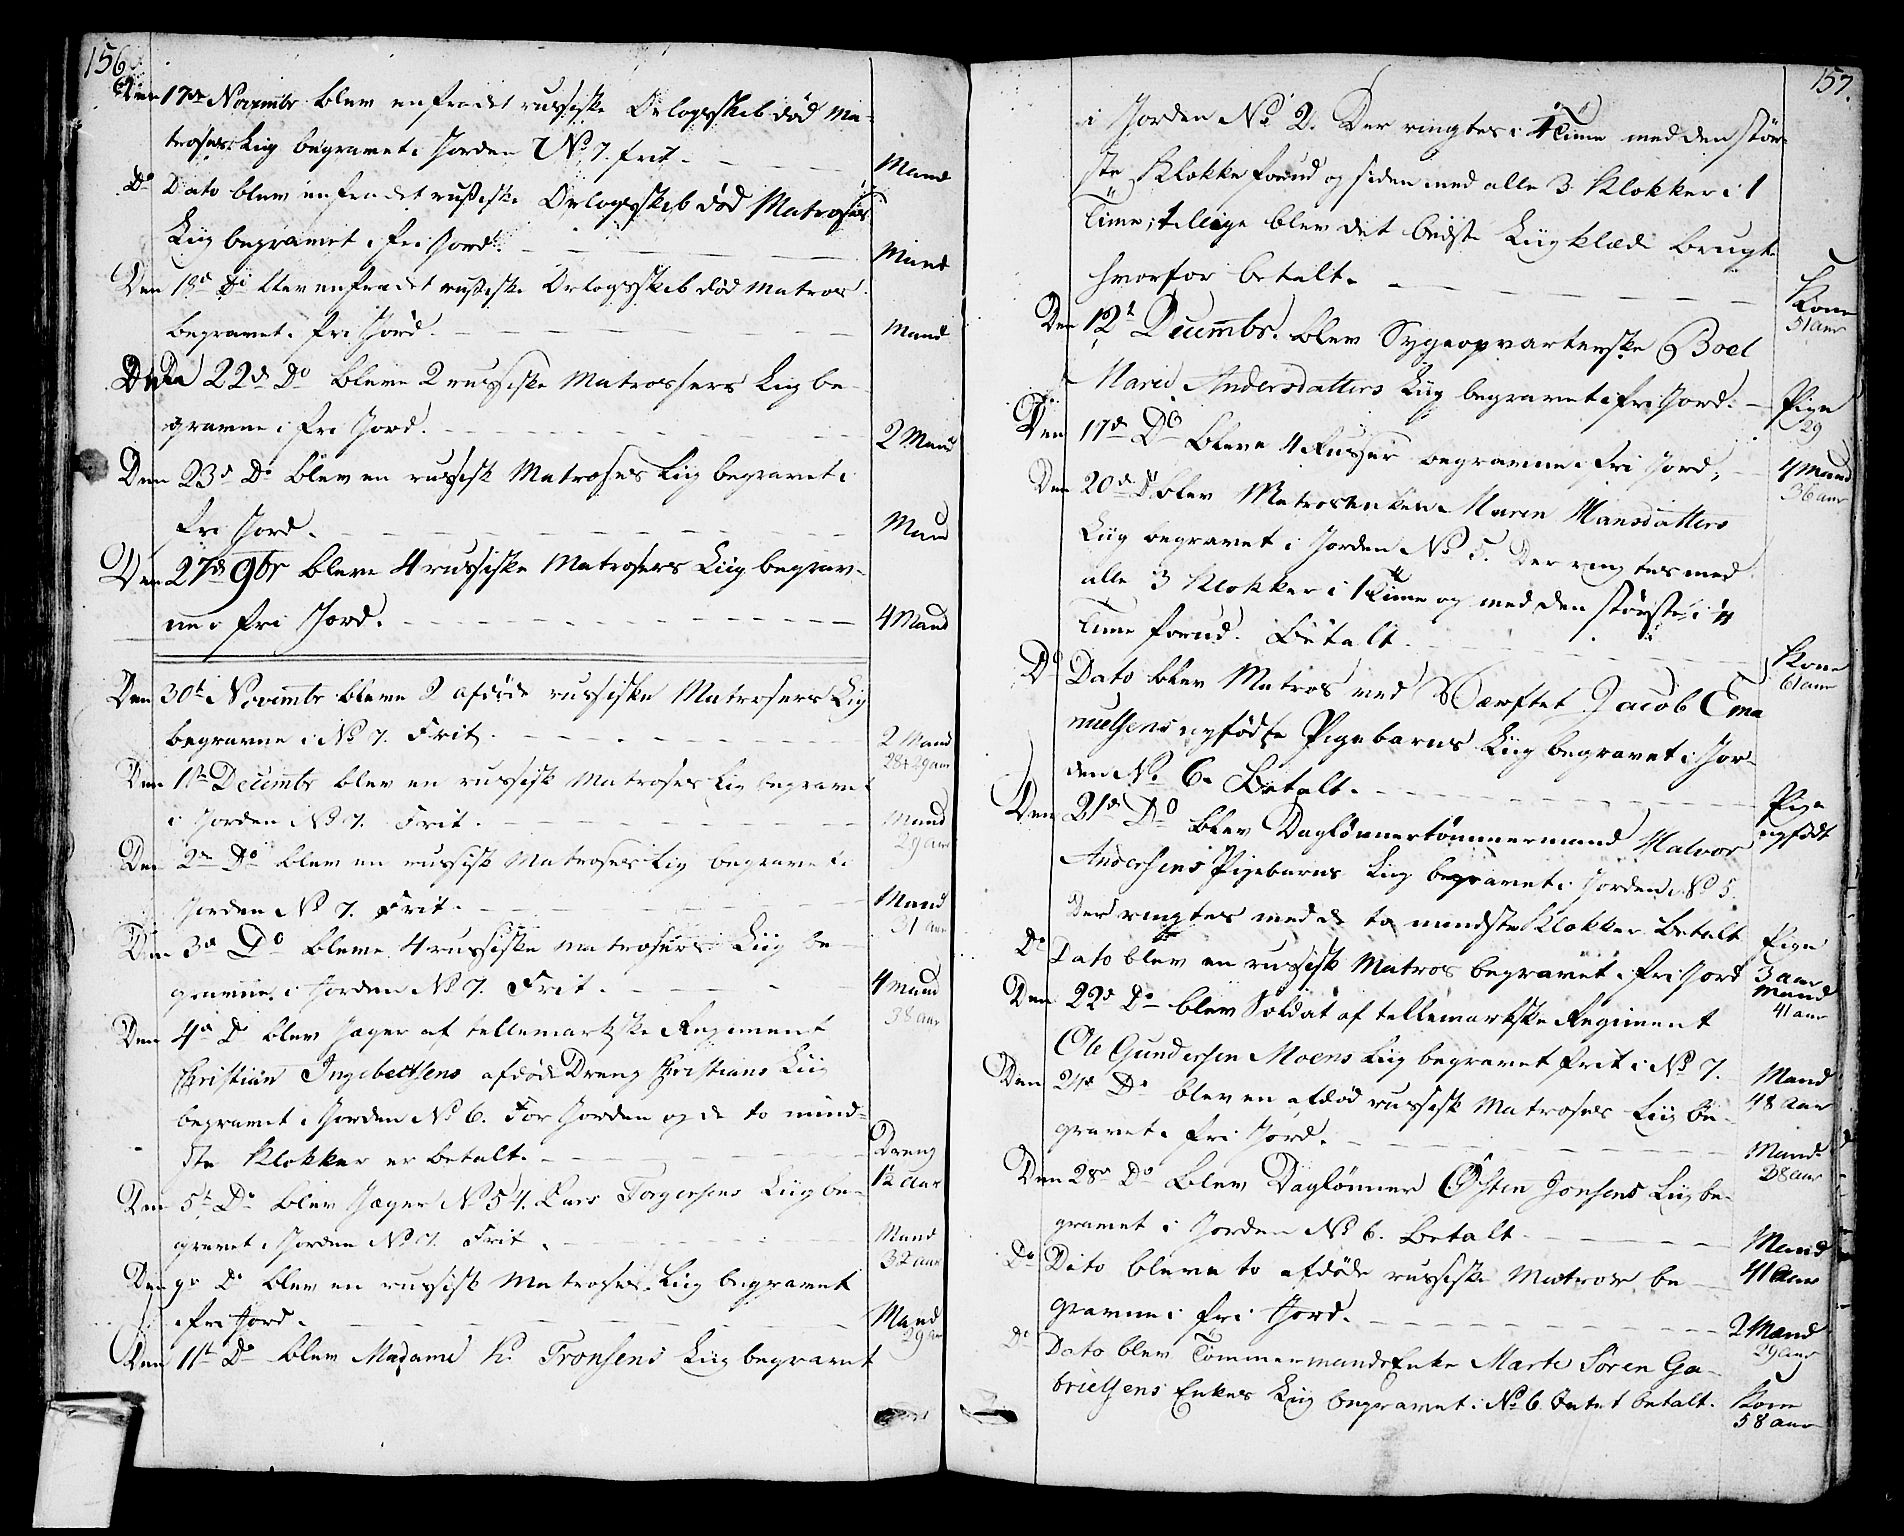 156
Den 17de Novembr blev en fra det russiske Orlogsskib død Ma-
troses Liig begravet i Jorden No 7. frit. Mand
Do Dato blev en fra det russiske Orlogsskib død Matroses
Liig begravet i fri Jord. Mand
Den 18de Do blev en fra det russiske Orlogsskib død Matros
begravet i fri Jord. Mand
Den 22de Do bleve 2 russiske Matrossers Liig be-
gravne i fri Jord. 2 Mand
Den 23de Do blev en russisk Matroses Liig begravet i
fri Jord. Mand
Den 27de 9br bleve 4 russiske Matrosers Liig begrav-
ne i fri Jord. 4 Mand
Den 30te Novembr bleve 2 afdøde russiske Matrosers Liig
begravne i No 7. Frit. 2 Mand
28 & 29 aar
Den 1te Decembr blev en russisk Matroses Liig begravet
i Jorden No 7. Frit. Mand
29 aar
Den 2den Do blev en russisk Matroses Liig begravet i
Jorden No 7. Frit. Mand
31 aar
Den 3de Do bleve 4 russiske Matrosers Liig be-
gravne i Jorden No 7. Frit. 4 Mand
38 aar
Den 4de Do blev Jæger af tellemarkske Regiment
Christian Ingebretsens afdøde Dreng Christians Liig
begravet i Jorden No 6. For Jorden og de to mind-
ste Klokker er betalt. Dreng
1½ Aar
Den 5te Do blev Jæger No 54. Lars Torgersens Liig be-
gravet i Jorden No 7. Frit. Mand
32 aar
Den 9de Do blev en russisk Matroses Liig begravet
i fri Jord. Mand
29 Aar
Den 11te Do blev Madame H. Tronsens Liig begravet
157.
i Jorden No 2. Der ringtes i ¼ Time med den stør-
ste Klokke forud og siden med alle 3 Klokker i 1
Time; tillige blev det bedste Liigklæde brugt
hvorfor betalt. Kone
51 aar
Den 12te Decembr. blev Sygeopvarterske Boel
Marie Andersdatters Liig begravet i fri Jord. Pige
29
Den 17de Do bleve 4 Russer begravne i fri Jord, 4 Mand
36 aar
Den 20de Do blev Matrosenken Maren Hansdatters
Liig begravet i Jorden No 5. Der ringtes med
alle 3 Klokker i 1 Time og med den største i ¼
Time forud. Betalt Kone
61 aar
Do Dato blev Matros ved Værftet Jacob Ema
nuelsens nyfødte Pigebarns Liig begravet i Jor-
den No 6. Betalt. Pige
nyfødt
Den 21de Do blev Dagløunertømmermand Halvor
Andersens Pigebarns Liig begravet i Jorden No 5.
Der ringtes med de to mindste Klokker Betalt Pige
3 aar
Do Dato blev en russisk Matros begravet i fri Jord Mand
41 aar
Den 22de Do blev Soldat af tellemarkske Regiment
Ole Gundersen Moens Liig begravet frit i No 7. Mand
48 Aar
Den 24de Do blev en afdød russisk Matroses Liig be-
gravet i fri Jord. Mand
38 aar
Den 28de Do blev Daglønner Østen Jonsens Liig be-
gravet i Jorden No 6. Betalt Mand
41 Aar
Do Dito bleve to afdøde russiske Matroser be-
gravne i fri Jord. 2 Mænd
29 aar
Do Dato blev Tømmermands Enke Marte Søren Ga-
brielsens Enkes Liig begravet i No 6 Intet betalt. Kone
58 aar